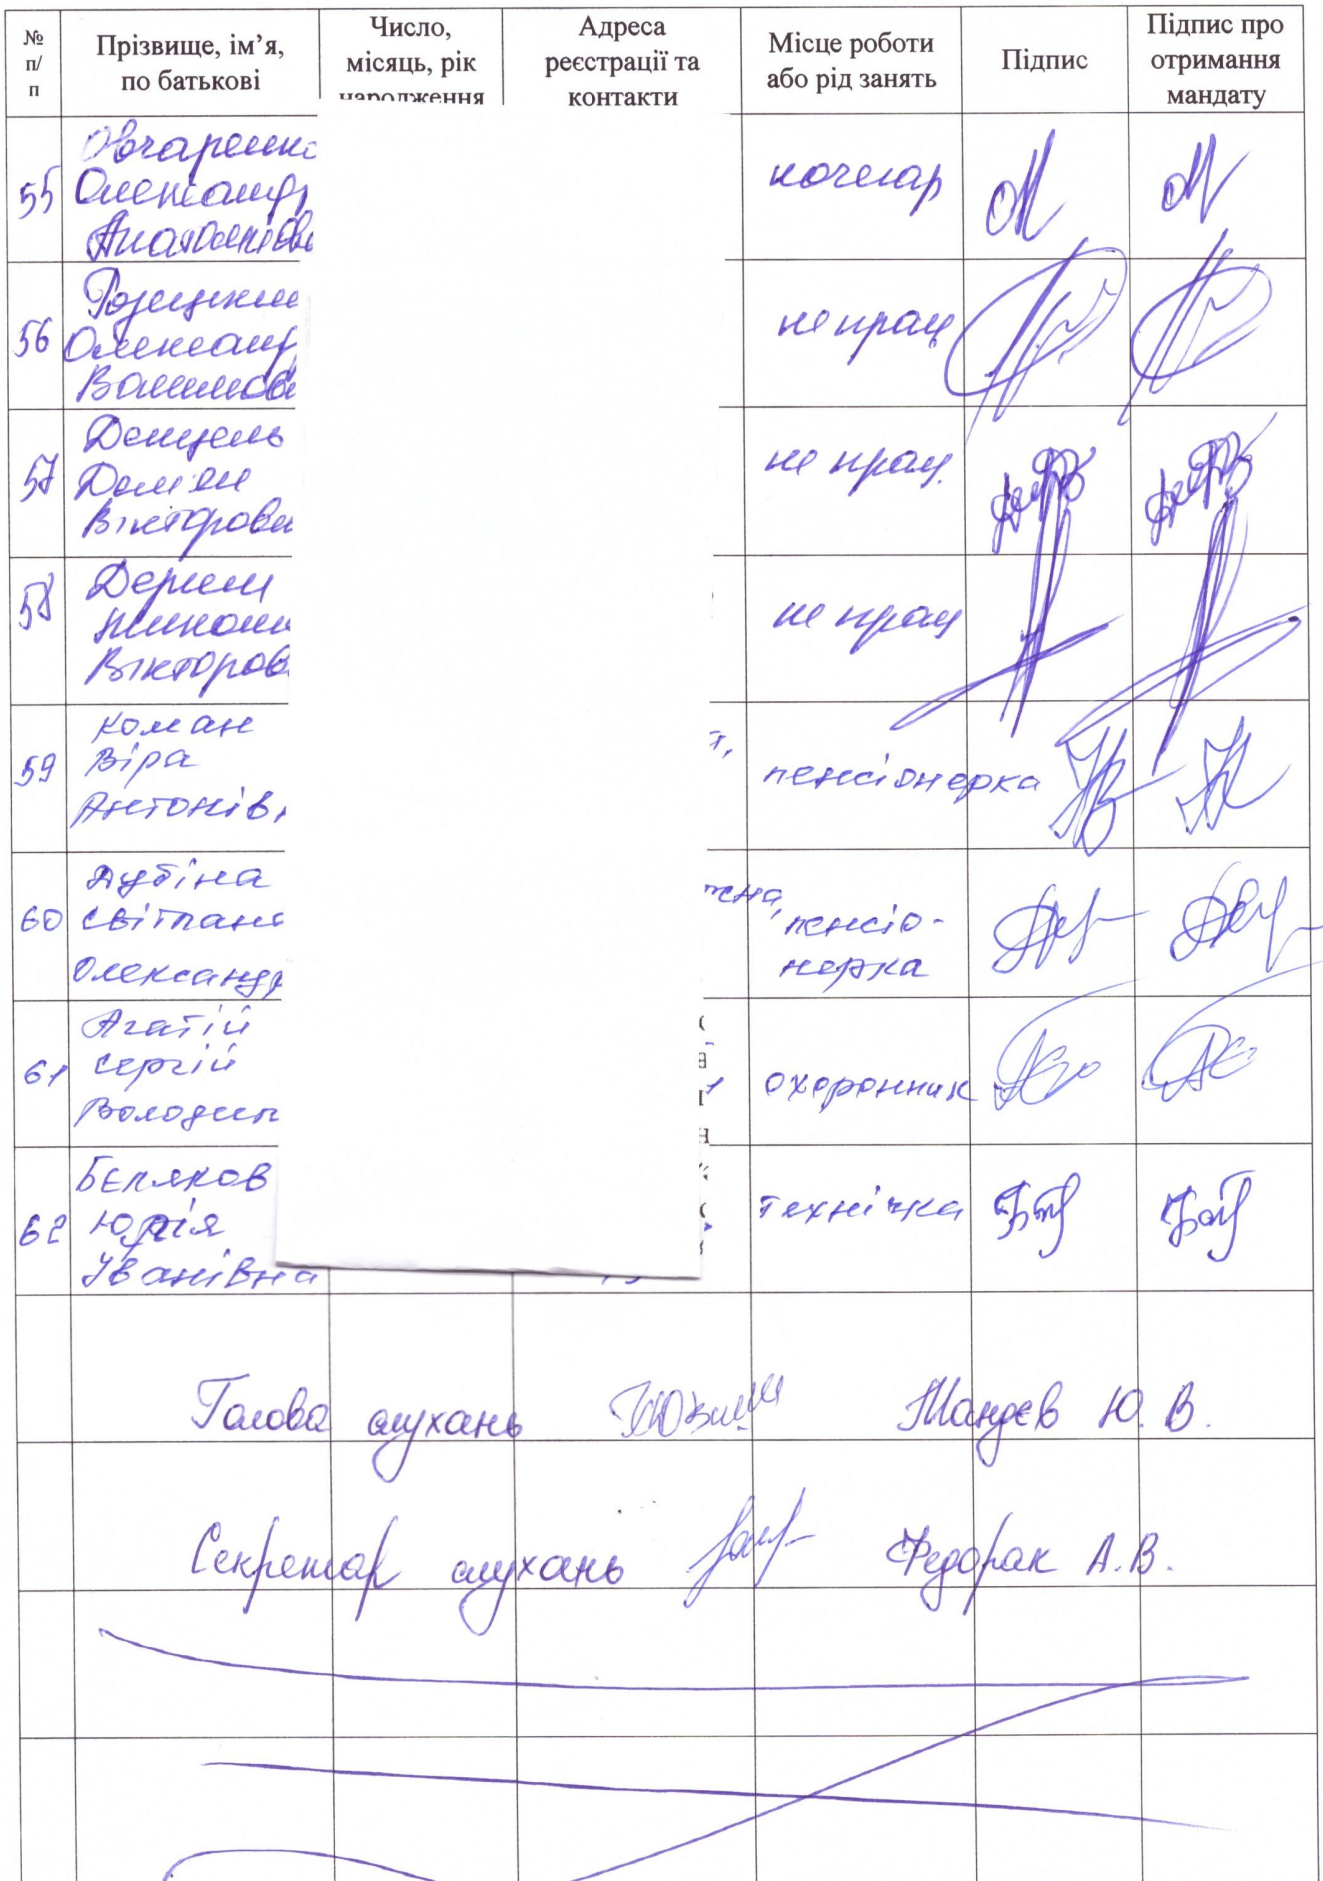 № п/п
Прізвище, ім’я, по батькові
Число, місяць, рік народження
Адреса реєстрації та контакти
Місце роботи або рід занять
Підпис
Підпис про отримання мандату
55
Овчаренко
Олександр
Анатолійов
кочегар
56
Олександр
не прац
57
Вікторови
не прац.
58
Вікторов
не прац
59
Коман
Віра
Антонів
пенсіонерка
60
Дубіна
Світлана
Олександр
пенсіо-
нерка
61
Агатій
Сергій
Володим
охоронник
62
Бєляков
Юрія
Іванівна
технічка
Голова слухань
Мандєв Ю. В.
Секретар слухань
Федорак А.В.